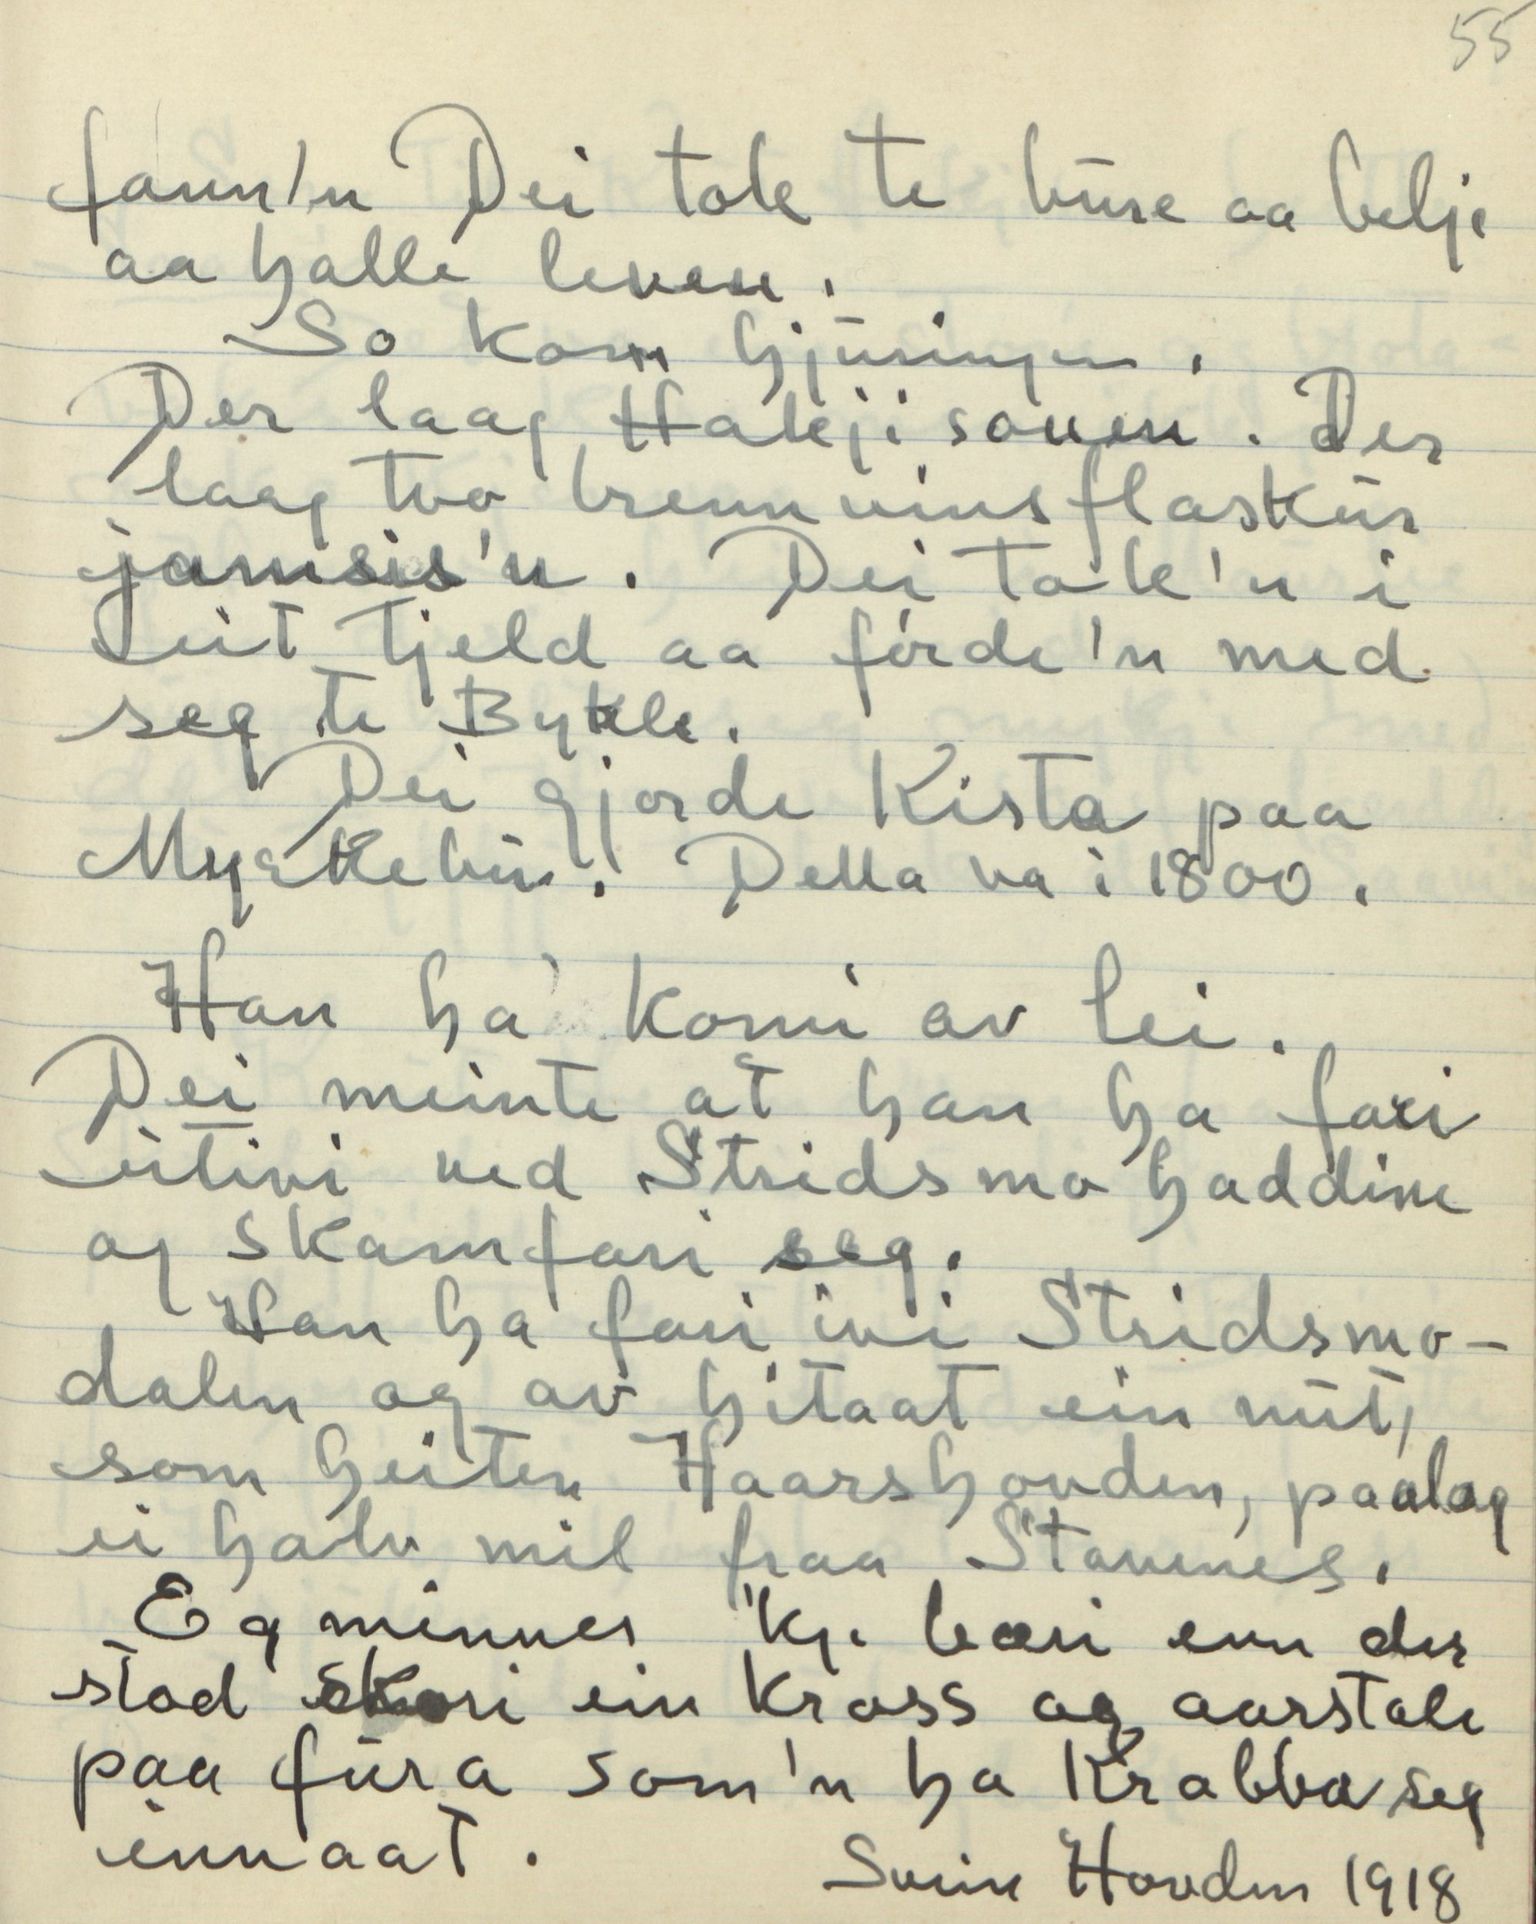 55
fann'n Dei tok te büre aa belje
aa halle leven.
So kom hjüringen.
Der laag Hakji soven. Der
laag tvo brennvinsflaskür
jamsis'n. Dei tok'n i
eit tjeld aa förde'n med
seg te Bykle.
Dei gjorde Kista paa
Myrkebür. Detta va i 1800.
Han ha komi av lei.
Dei meinte at han ha fari
ütivi ved Stridsmo haddine
og skamfari seg.
Han ha fari ivi Stridsmo-
dalen og av hitaat ein nüt,
som heiter Haarshovden, paalag
ei halv mil fraa Stavenes.
Eg minnes 'kje bæri enn der
stod skori ein kross og aarstale
paa füra som'n ha krabba seg
innaat.
Svein Hovden 1918